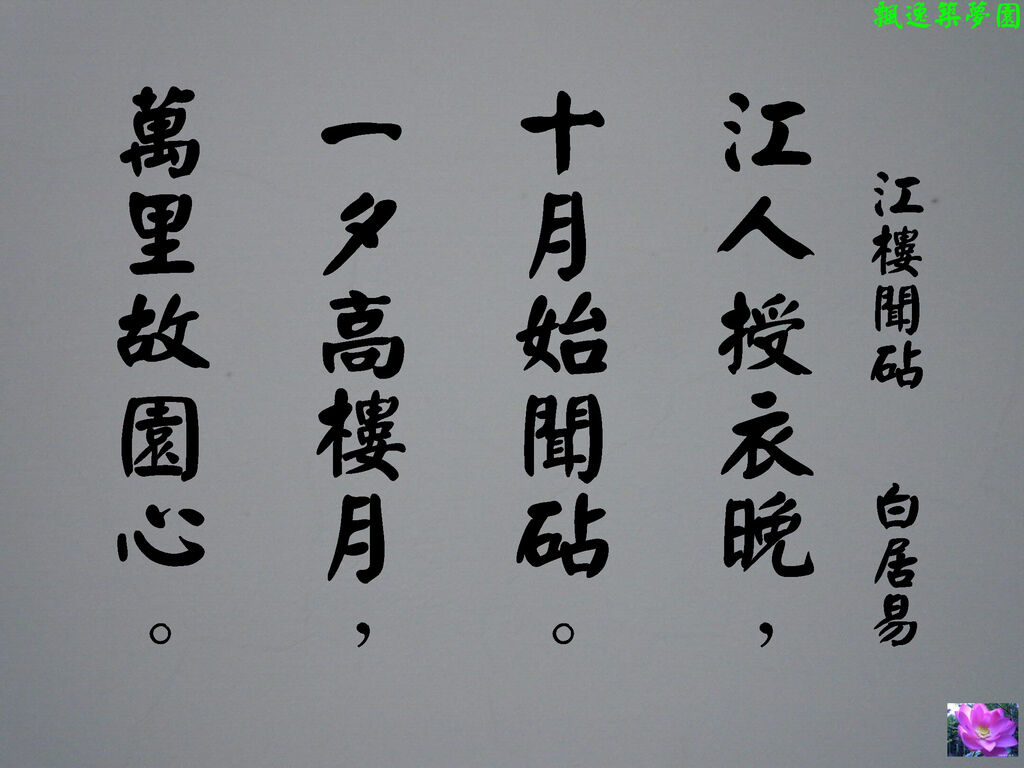 飄逸築夢園
江樓聞砧 白居易
江人授衣晚，
十月始聞砧。
一夕高樓月，
萬里故園心。